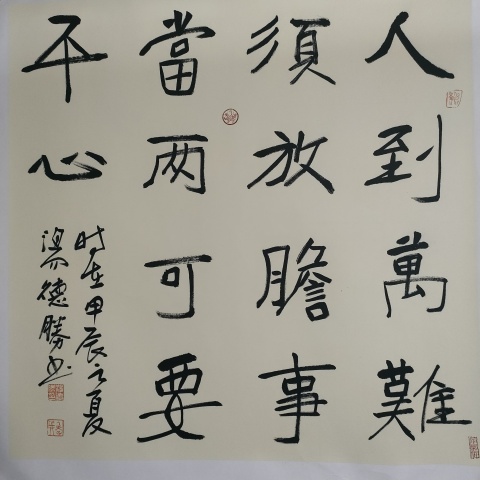 人到萬難
須放膽事
當两可要
平心
時在甲辰之夏
梁德勝书